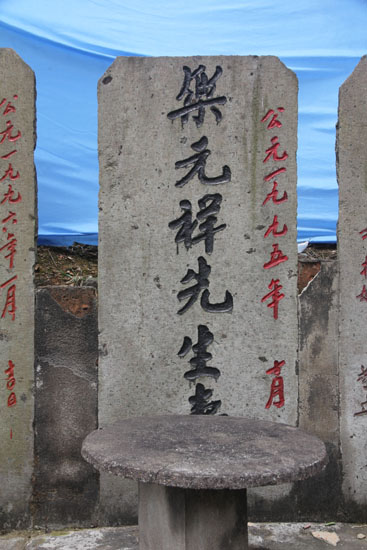 公元一九九五年 十月
樂元祥先生
公元一九九六年一月 吉日